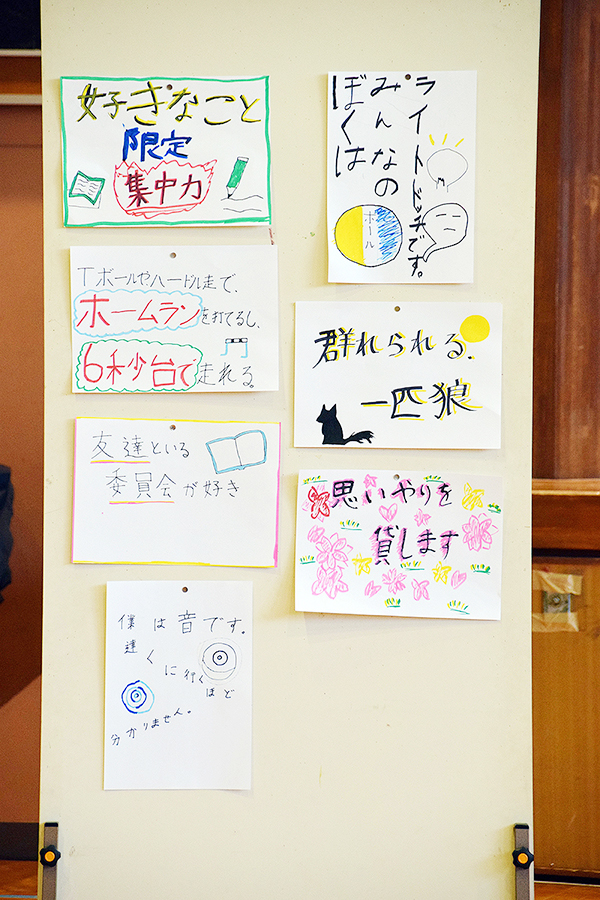 好きなこと
限定
集中力
ぼくは
みんなの
ライトドッチです。
ボール
Tボールやハードル走で、
ホームランを打てるし、
6秒台で走れる。
群れられる、
一匹狼
友達といる
委員会が好き
思いやりを
貸します
僕は音です。
遠くに行くほど
分かりません。